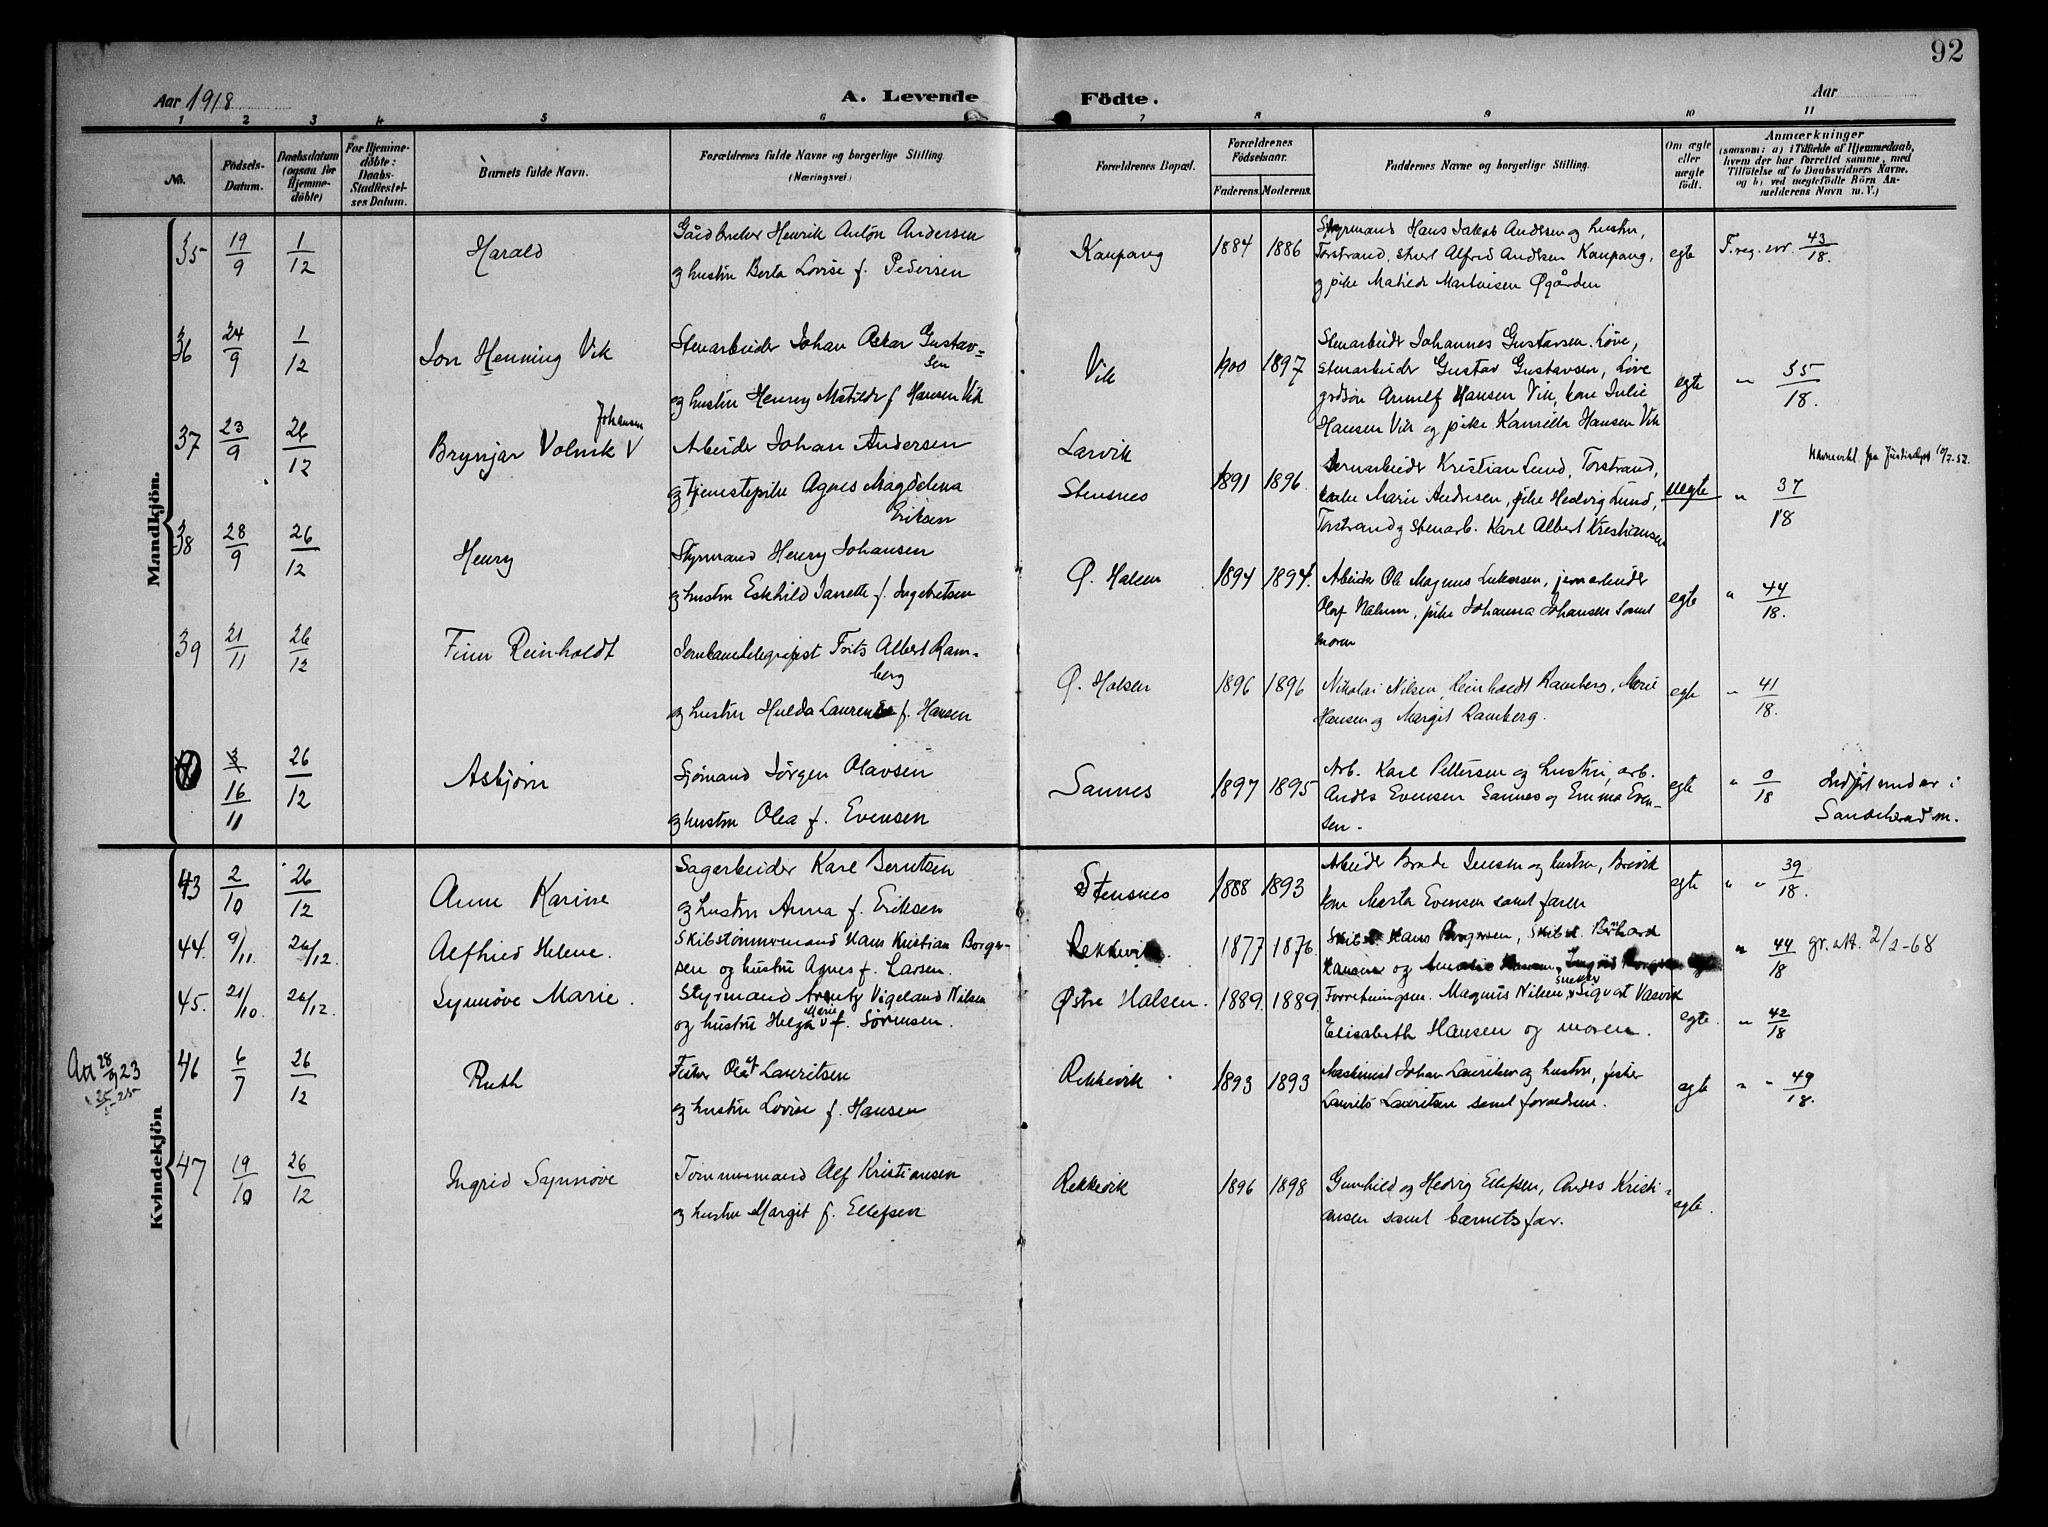 92
Aar 1918
A. Levende Födte.
Aar
1 2 3 4 5 6 7 8 9 10 11
No.
Födsels-Datum.
Daabsdatum (ogsaa for Hjemmedöbte)
For Hjemmedöbte: Daabs-Stadfæstelses Datum.
Barnets fulde Navn.
Forældrenes fulde Navne og borgerlige Stilling. (Næringsvei.)
Forældrenes Bopæl.
Forældrenes Födselsaar.
Faderens. Moderens.
Faddernes Navne og borgerlige Stilling.
Om ægte eller uægte födt.
Anmærkninger
(saasom: a) i Tilfælde af Hjemmedaab,
hvem der har forrettet samme, med
Tilföielse af to Daabsvidners Navne,
og b) ved uægtefödte Börn An-
melderens Navn m. V.)
Mandkjön.
35 19/9 1/12 Harald
Gårdbruker Henrik Anton Andersen
og hustru Berta Lovise f. Pedersen
Kaupang 1884 1886
Styrmand Hans Jakob Andersen og hustru,
Torstrand, Alfred Andersen Kaupang,
og pike Matilde Martinsen Øgården
egte F. reg. nr. 43/18.
36 24/9 1/12 Jon Henning Vik
Stenarbeider Johan Oskar Gustav-
sen
og hustru Henny Matilde f Hansen Vik
Vik 1900 1897
Stenarbeider Johannes Gustavsen, Løve,
stenarbeider Gustav Gustavsen, Løve
Hansen Vik, kone Julie
Hansen Vik og pike Hansen Vik
egte " 35/18.
37 23/9 26/12 Brynjar Volrik V Johansen
Arbeider Johan Andersen
og tjenestepike Agnes Magdelena
Eriksen
Larvik
Stensnes 1891 1896
Stenarbeider Kristian Lund, Torstrand,
Marie Andresen, pike Hedvig Lund,
Torstrand og stenarb. Karl Albert Kristiansen
uegte " 37/18
38 28/9 26/12 Henry
Styrmand Henry Johansen
og hustru Eskhild Janette f. Ingebretsen
Ø. Halsen 1894 1894.
Arbeider Ole Magnus, jernarbeider
Olaf, pike Johanna Johansen samt
moren
egte " 44/18.
39 21/11 26/12 Finn Reinholdt
Jernbanetelegrafist Frits Albert Ram-
berg
og hustru Hulda f. Hansen
Ø. Halsen 1896 1896
Nikolai Nilsen, Reinholdt Ramberg, Marie
Hansen og Margit Ramberg.
egte " 41/18.
3 16/11 26/12 Asbjørn
Sjømand Jørgen Olavsen
og hustru Olea f. Evensen
Sannes 1897 1895
Arb. Karl Pettersen og hustru, arb.
Anders Evensen Sannes og Emma Even-
sen.
egte " 0/18 Indført under i
Sandeherred m.
Kvindekjön
43 2/10 26/12 Anne Karine
Sagarbeider Karl Berntsen
og hustru Anna f. Eriksen
Stensnes 1888 1893
Arbeider Jensen og hustru, Brevik
kone Marta Evensen samt faren
egte " " 39/18.
44. 9/11. 26/12. Alfhild Helene.
Skibstømmermand Hans Kristian Borger-
sen og hustru Agnes f. Larsen.
Rekkevik. 1877 1876
Skibst. Hans Borgersen, Skibst.
Hansen og Amalie Hansen, Ingrid
" 44/18 gr. att. 2/2-68
45. 21/10. 26/12. Synnøve Marie.
Styrmand Arentz Vigeland Nilsen
og hustru Helga Marie f. Sørensen.
Østre Halsen. 1889. 1889.
Forretningsm. Magnus Nilsen, Snekker Sigvat Vasvik
Elisabeth Hansen og moren.
egte. " 42/18
Att 28/9 23
25/5-25
46 6/7 26/12 Ruth
Fisker Olaf Lauritsen
og hustru Lovise f. Hansen
Rekkevik 1893 1893
Maskinist Johan Lauritsen og hustru, fisker
Laurits Lauritsen samt forældrene.
egte " " 49/18.
47 19/10 26/12 Ingrid Synnøve
Tømmermand Alf Kristiansen
og hustru Margit f. Ellefsen
Rekkevik 1896 1898
Gunhild og Hedvig Ellefsen, Anders Kristi-
ansen samt barnets far.
egte.